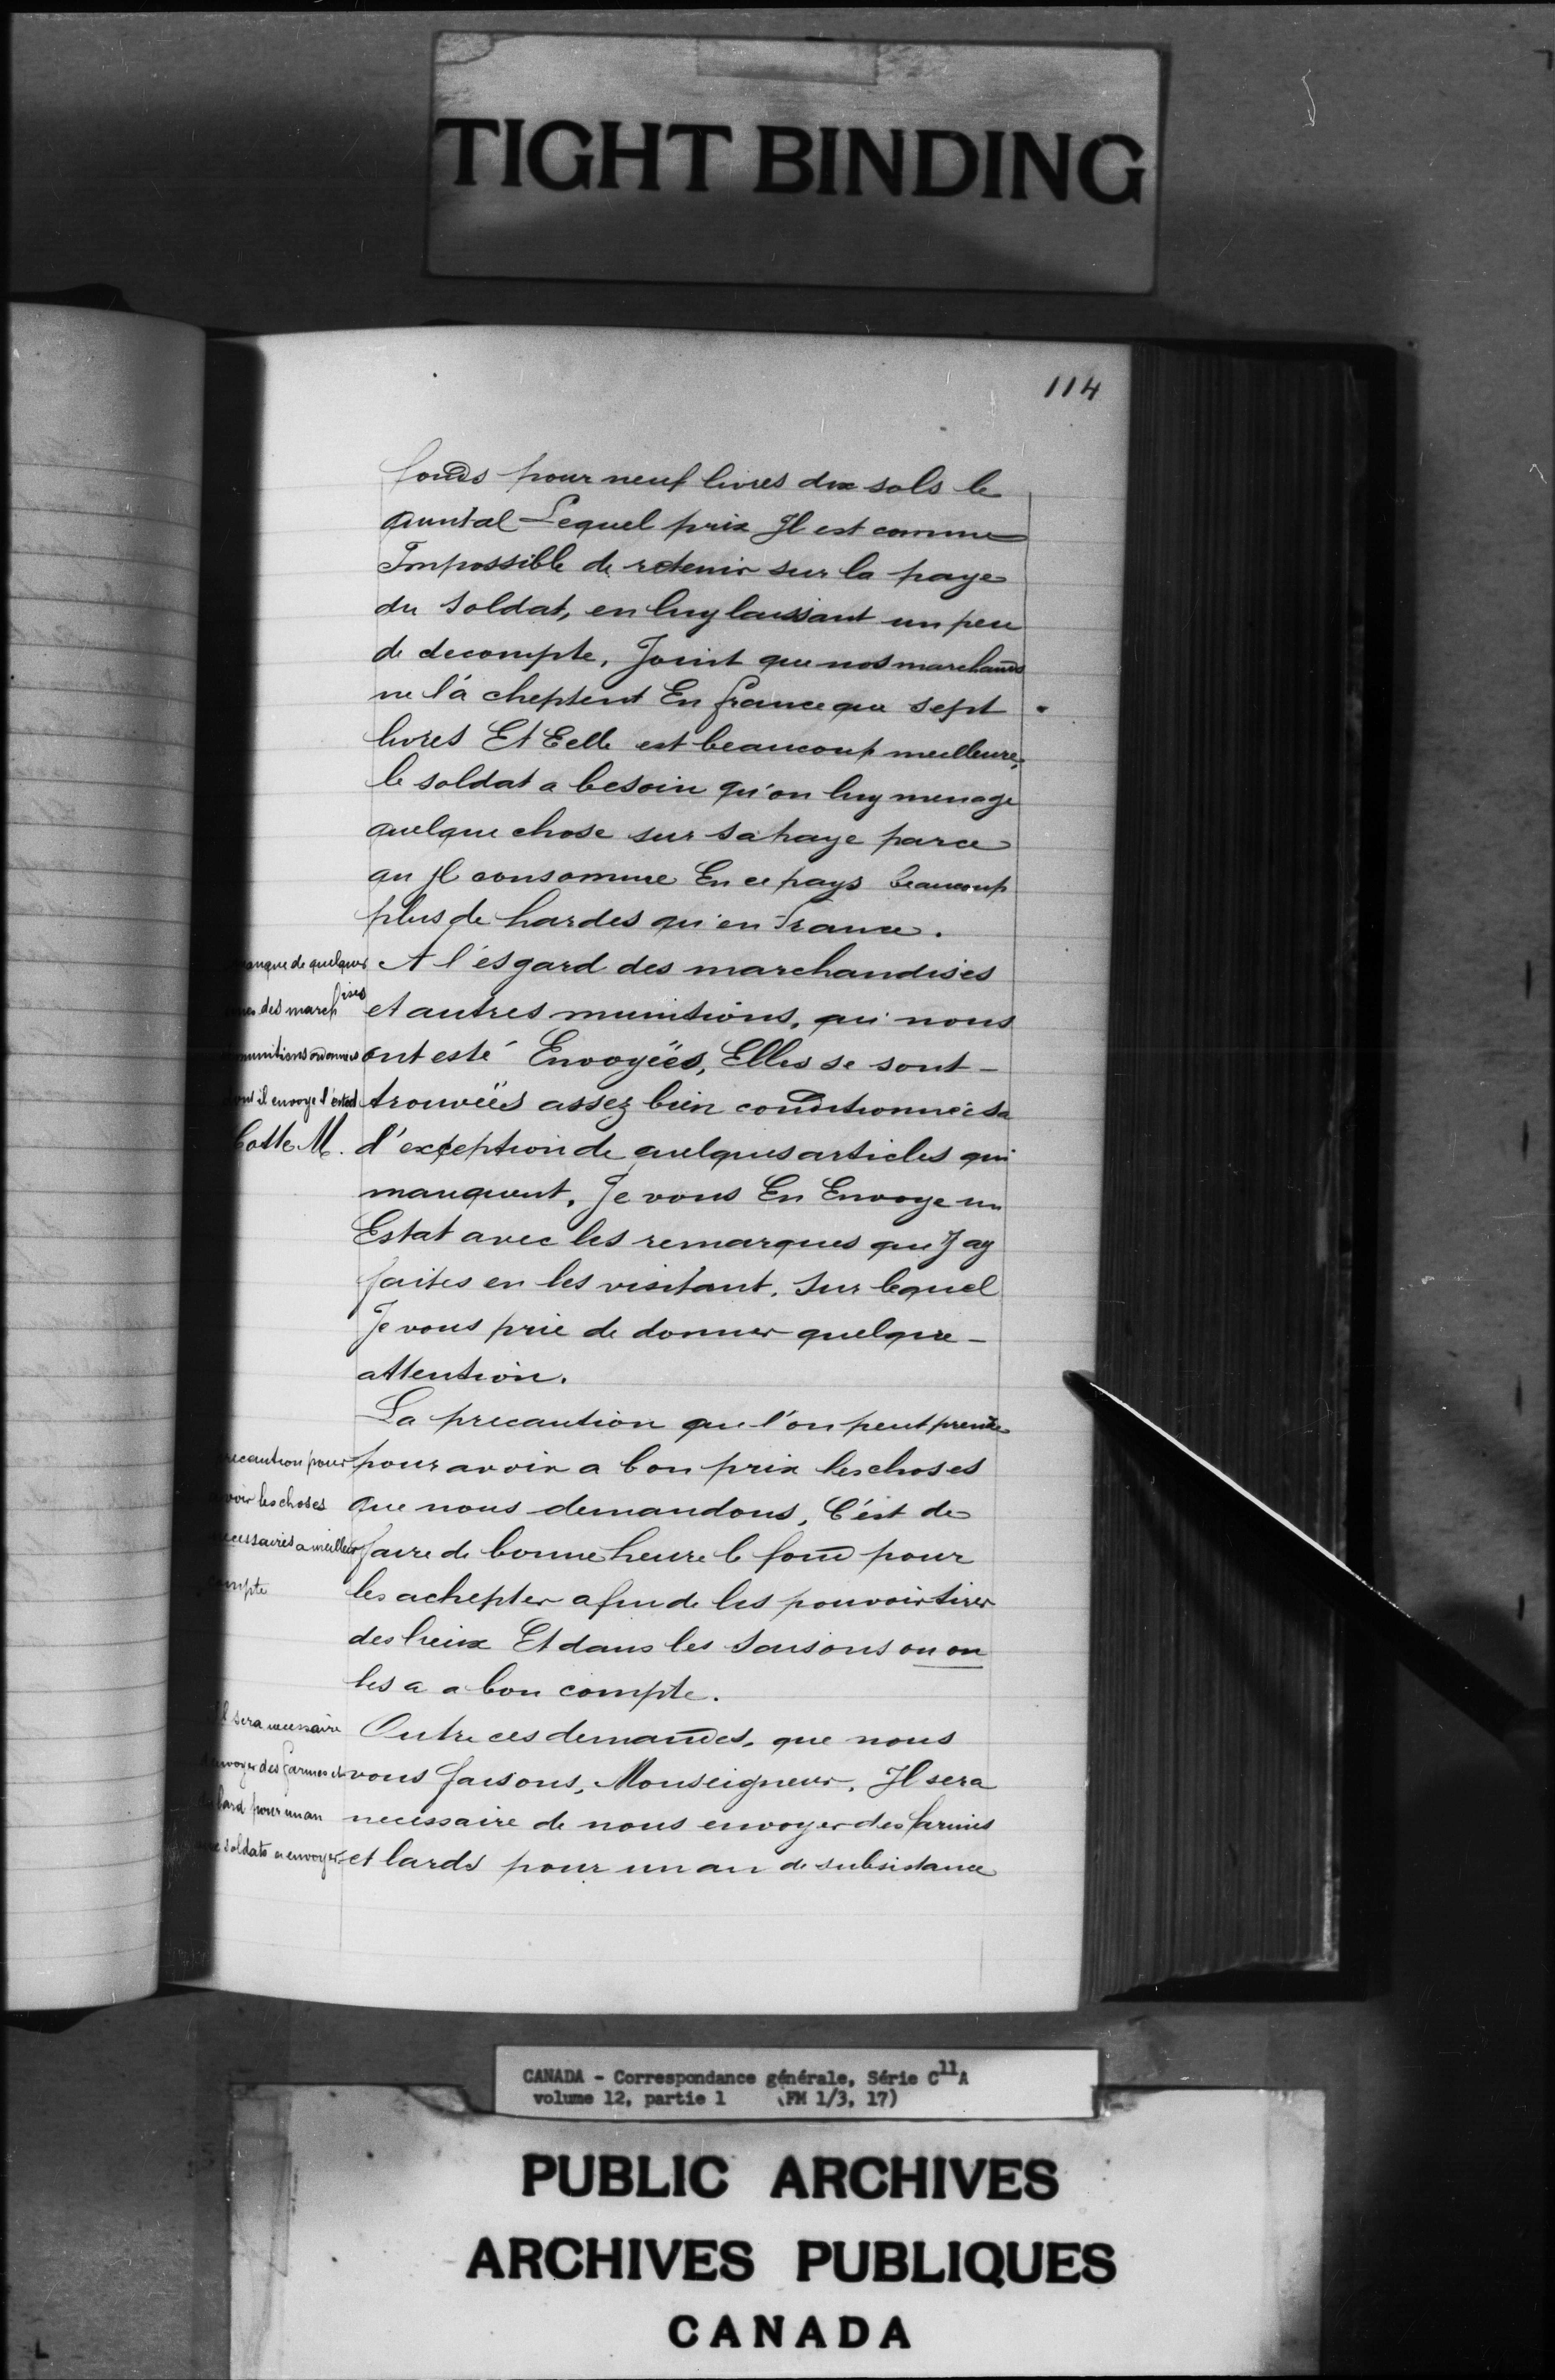 TIGHT BINDING
114
fonds pour neuf livres dix sols le
quintal Lequel prix Jl est comme
Impossible de retenir sur la paye
du soldat, en luy laissant un peu
de decompte, Joint que nos marchands
ne l'á cheptent En france que sept
livres Et Eelle est beaucoup meilleure,
le soldat a besoin qu'on luy menage
quelque chose sur sa paye parce
qu Jl consomme En ce pays beaucoup
plus de hardes qu'en France.
manque de quelques
unes des march ises
munitions ordonnées
dont il envoye l'estat
Cotte M.
A l'ésgard des marchandises
et autres munitions, qui nous
ont esté Envoyées, Elles se sont -
trouvées assez bien conditionnées a
l'exception de quelques articles qui
manquent, Je vous En Envoye un
Estat avec les remarques que J'ay
faites en les visitant, sur lequel
Je vous prie de donner quelque -
attention.
precaution pour
avoir les choses
necessaires a meilleur
compte
La precaution que l'on peut prendre
pour avoir a bon prix les choses
que nous demandons, C'ést de
faire de bonne heure le fond pour
les achepter afin de les pouvoir tirer
des lieux Et dans les saisons ou on
les a a bon compte.
Il sera necessaire
d'envoyer des farines et
lard pour un an
soldats a envoyer
Outre ces demandes, que nous
vous faisons, Monseigneur, Jl sera
necessaire de nous envoyer des farines
et lards pour un an de subsistance
CANADA - Correspondance générale, Série C11A
volume 12, partie 1 (FM 1/3, 17)
PUBLIC ARCHIVES
ARCHIVES PUBLIQUES
CANADA